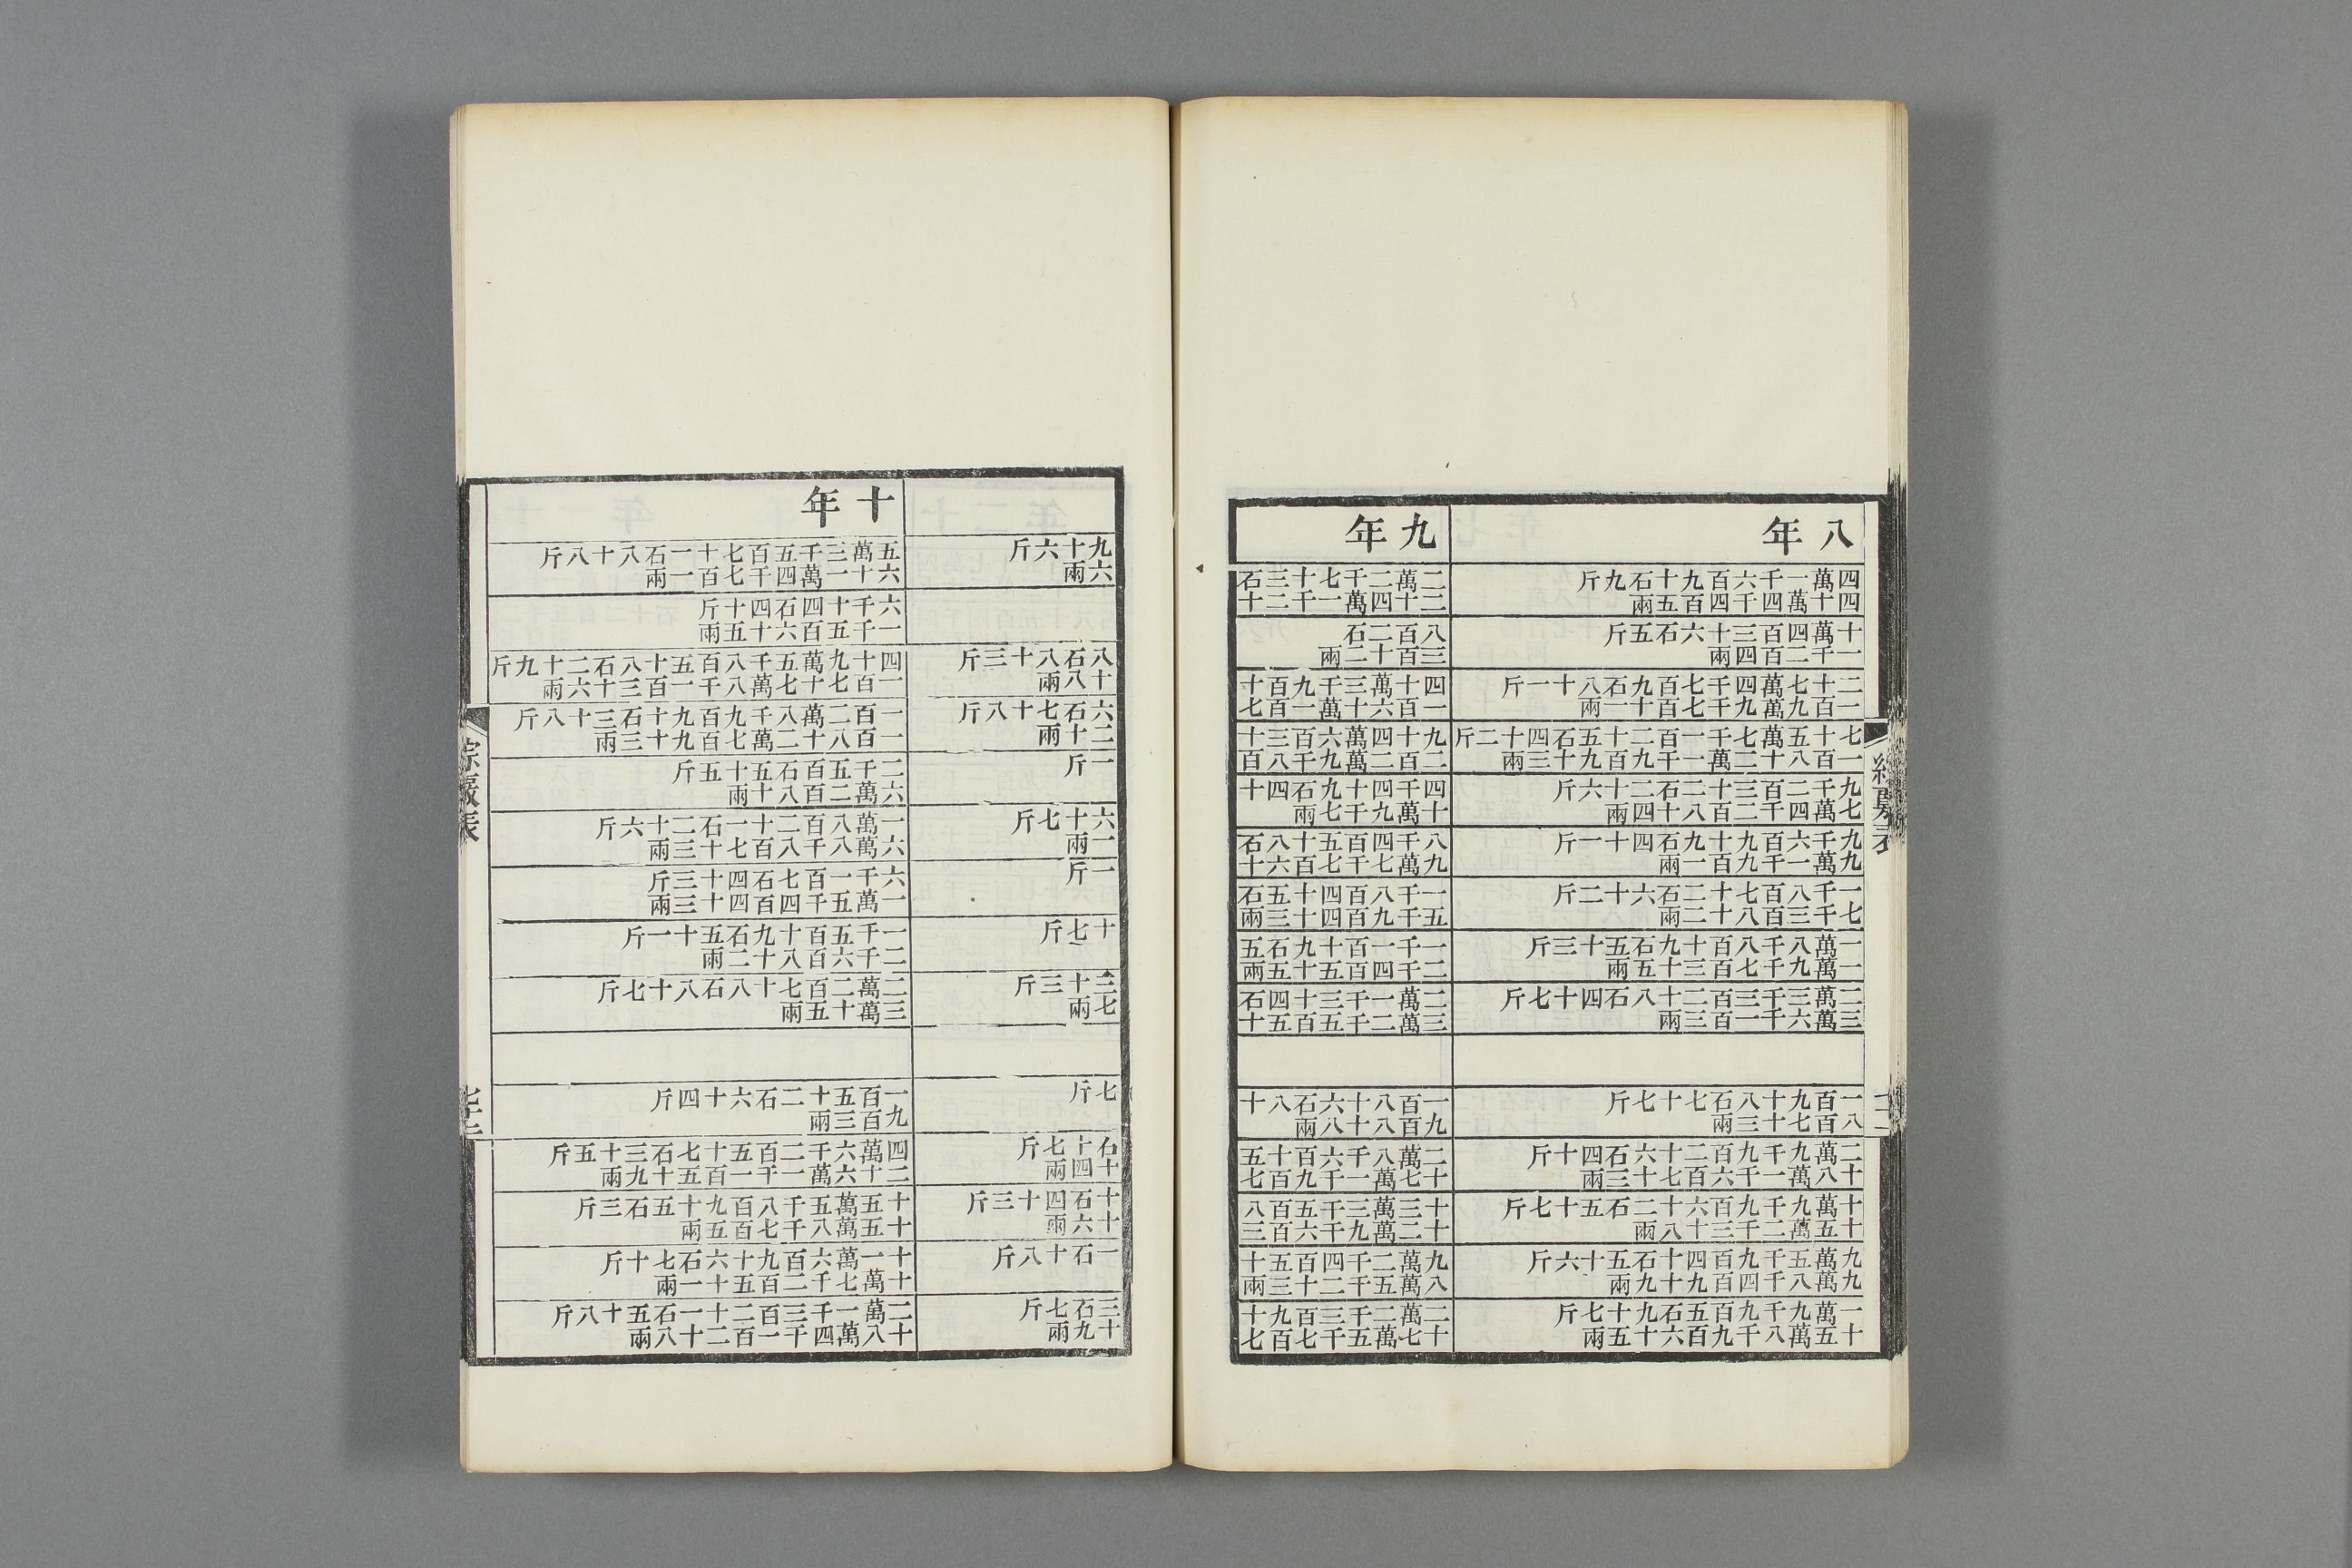 八年
四萬一千六百九十石九斤
四十萬四千四百五兩
十萬四百三十六石五斤
一千二百四兩
二十七萬四千七百九石八十一斤
一百九萬九千七百十一兩
七十五萬七千一百二十五石四十二斤
一百八十二萬一千九百九十三兩
九千二百三十二石二十六斤
七萬四千二百八十四兩
九千六百九十九石四十一斤
九萬一千九百一兩
一千八百七十二石六十二斤
七千三百八十二兩
一萬八千八百十九石五十三斤
一萬九千七百三十五兩
二萬三千三百二十八石四十七斤
三萬六千一百三兩
一百九十八石七十七斤
八百七十三兩
二萬九千九百二十六石四十斤
十八萬一千六百七十三兩
十萬九千九百六十二石五十七斤
十五萬二千三十八兩
九萬五千九百四十石五十六斤
九萬八千四百九十九兩
一萬九千九百五石九十七斤
十五萬八千九百六十五兩
九年
二萬二千七十三石
二十四萬一千二十
八百二石
三百十二兩
四十萬三千九百十
一百六十萬一百七
九十四萬六百三十
二百二萬九千八百
四千四十九石四十
十萬九千七兩
八千四百五十八石
九萬七千七百六十
一千八百四十五石
五千九百四十三兩
一千一百十九石五
二千四百五十五兩
二萬一千三十四石
三萬二千五百五十
一百八十六石八十
九百八十八兩
二萬八千六百十五
十七萬一千九百七
十三萬三千五百八
十二萬九千六百三
九萬二千四百五十
八萬五千二十三兩
二萬二千三百九十
十七萬五千七百七
九十六斤
六兩
八石八十三斤
十八兩
六石七十八斤
二十兩
一斤
六十七斤
一兩
一斤
十七斤
三十三斤
七兩
七斤
石十七斤
十四兩
十石四十三斤
十六兩
一石十八斤
三石七斤
十九兩
十年
五萬三千五百七十一石八十八斤
六十一萬四千七百一兩
六千十四石四十斤
一千五百六十五兩
四十九萬五千八百五十八石二十九斤
一百七十七萬八千一百三十六兩
一百二萬八千九百九十石三十八斤
一百八十二萬七百九十三兩
二千五百石五十五斤
六萬二百八十兩
一萬八百二十一石二十六斤
六萬八千八百七十三兩
六千一百七石四十三斤
一萬五千四百四十三兩
一千五百十九石五十一斤
二千六百八十二兩
二萬二百七十八石八十七斤
三萬十五兩
一百五十二石六十四斤
九百三兩
四萬六千二百五十七石三十五斤
二十六萬一千一百五十九兩
十五萬五千八百九十五石三斤
十五萬八千七百五兩
十一萬六百九十六石七十斤
十萬七千二百五十一兩
二萬一千三百二十一石五十八斤
十八萬四千一百二十八兩
綜覈表